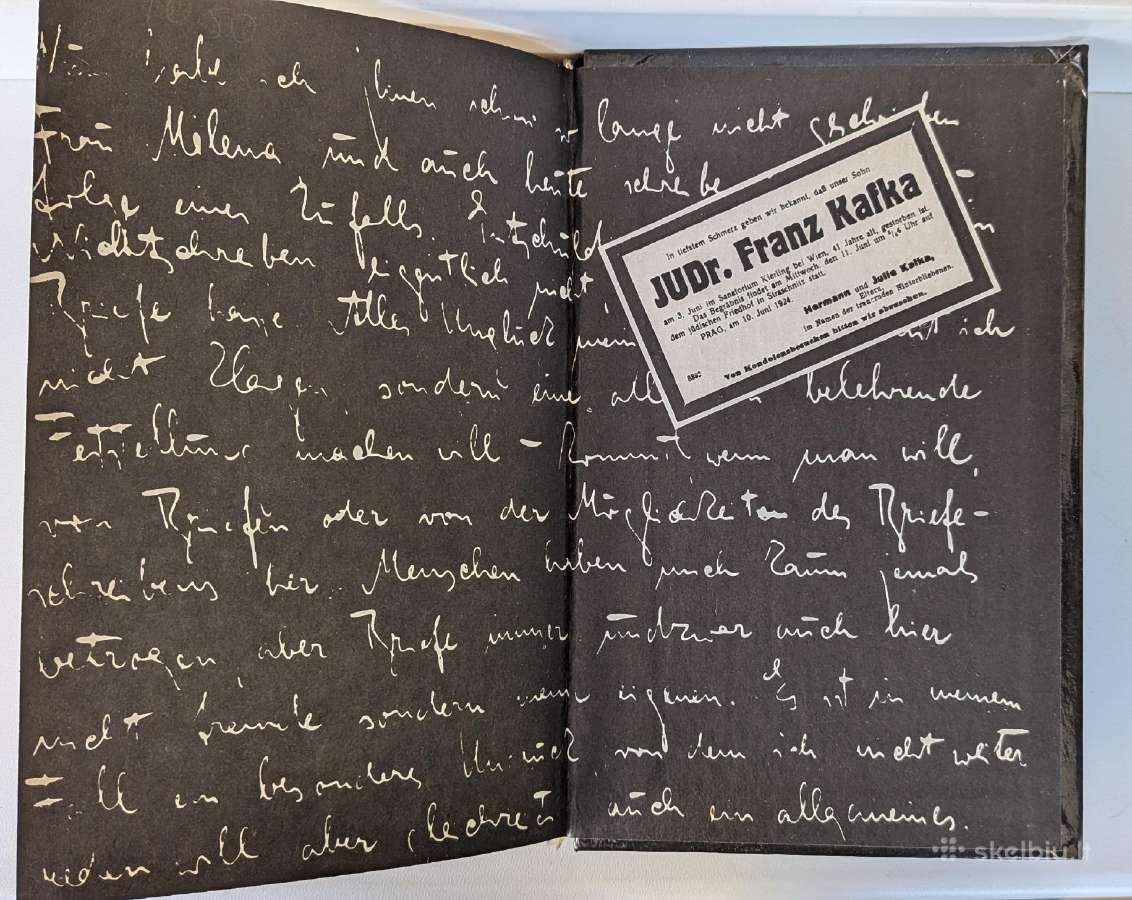 habe ich Ihnen schon so lange nicht geschrieben
Frau Milena und auch heute schreibe
infolge eines Zufalls. Entschuld
Nichtschreiben eigentlich nicht
Briefe hasse Alles Unglück mein ich
nicht klagen sondern eine all belehrende
Feststellung machen will – kommt, wenn man will,
von Briefen oder von der Möglichkeit des Briefe-
schreibens her. Menschen haben mich kaum jemals
betrogen, aber Briefe immer undzwar auch hier
nicht fremde sondern meine eigenen. Es ist in meinem
Fall ein besonderes Unglück, von dem ich nicht weiter
reden will aber auch ein allgemeines.
In tiefstem Schmerz geben wir bekannt, daß unser Sohn
JUDr. Franz Kafka
am 3. Juni im Sanatorium Kierling bei Wien, 41 Jahre alt, gestorben ist.
Das Begräbnis findet am Mittwoch, den 11. Juni um Uhr auf
dem jüdischen Friedhof in Straschnitz statt.
PRAG, am 10. Juni 1924.
Hermann und Julie Kafka,
Eltern,
im Namen der trauernden Hinterbliebenen.
Von Kondolenzbesuchen bitten wir abzusehen.
skelbiu.lt